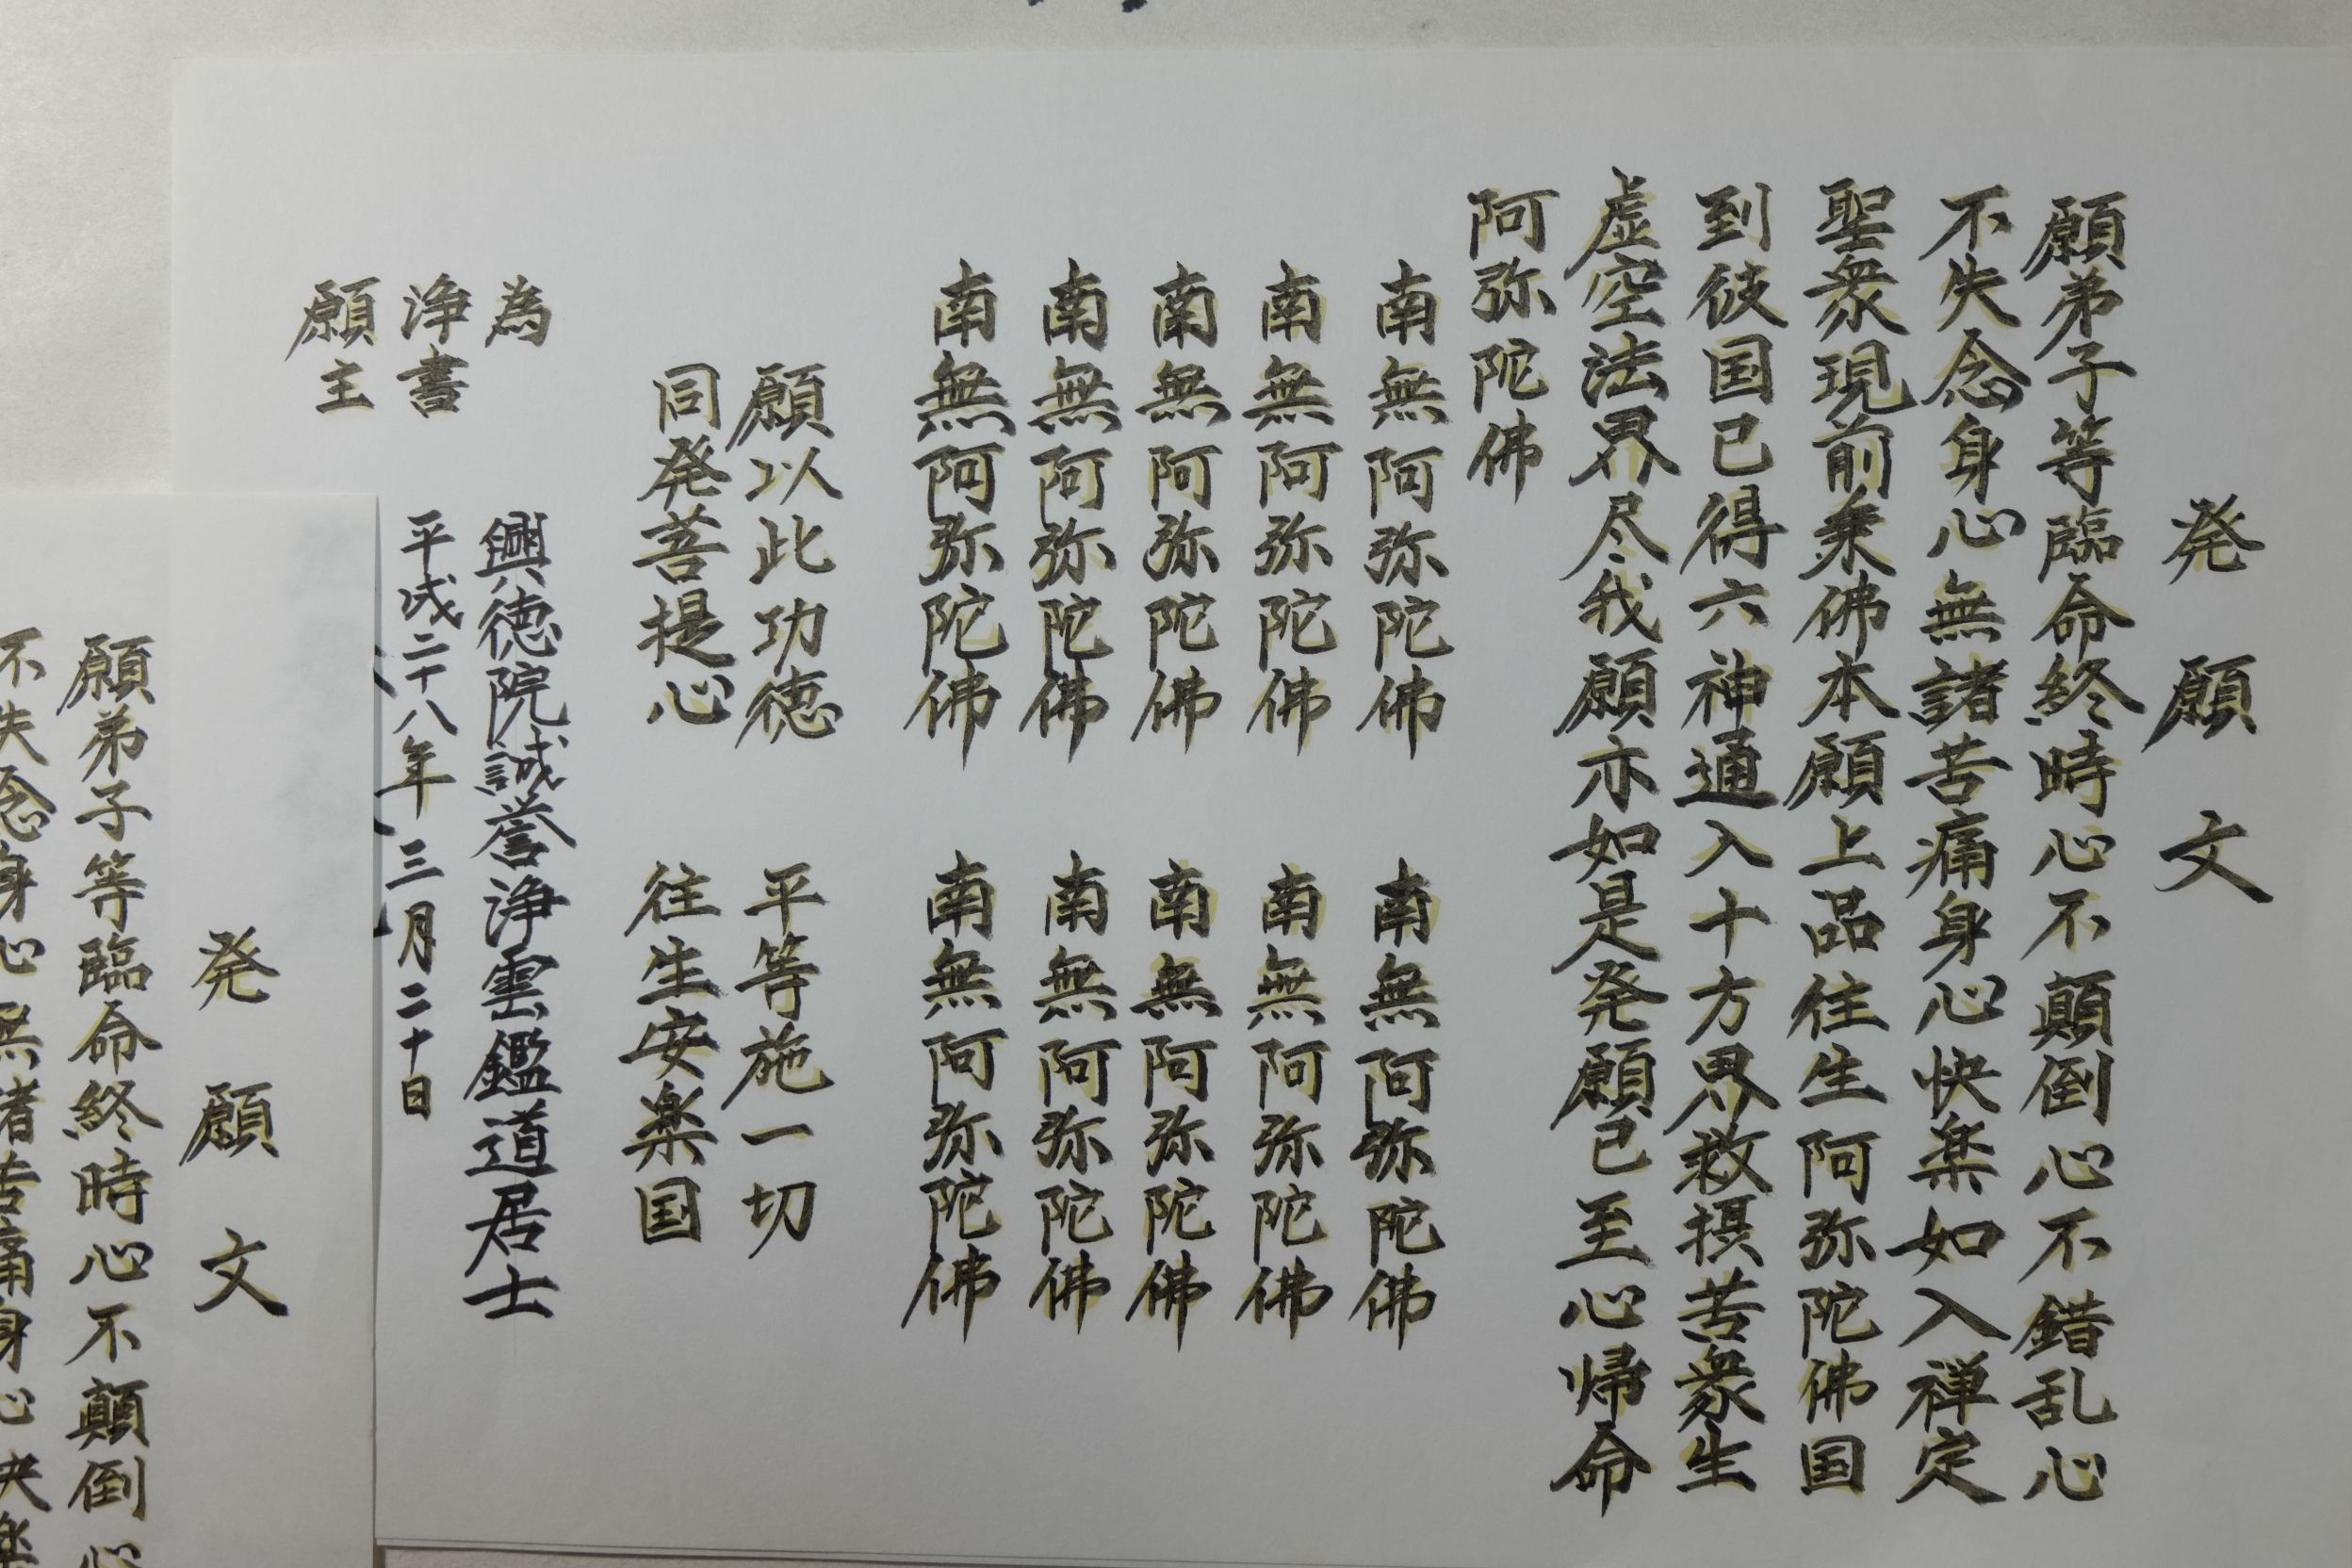 発願文
願弟子等臨命終時心不顛倒心不錯乱心
不失念身心無諸苦痛身心快楽如入禅定
聖衆現前乗佛本願上品往生阿弥陀佛国
到彼国已得六神通入十方界救摂苦衆生
虚空法界尽我願亦如是発願已至心帰命
阿弥陀佛
南無阿弥陀佛 南無阿弥陀佛
南無阿弥陀佛 南無阿弥陀佛
南無阿弥陀佛 南無阿弥陀佛
南無阿弥陀佛 南無阿弥陀佛
南無阿弥陀佛 南無阿弥陀佛
願以此功徳 平等施一切
同発菩提心 往生安楽国
為 興徳院誠誉浄雲鑑道居士
浄書 平成二十八年三月二十日
願主
発願文
願弟子等臨命終時心不顛倒心
不失念身心無諸苦痛身心快楽